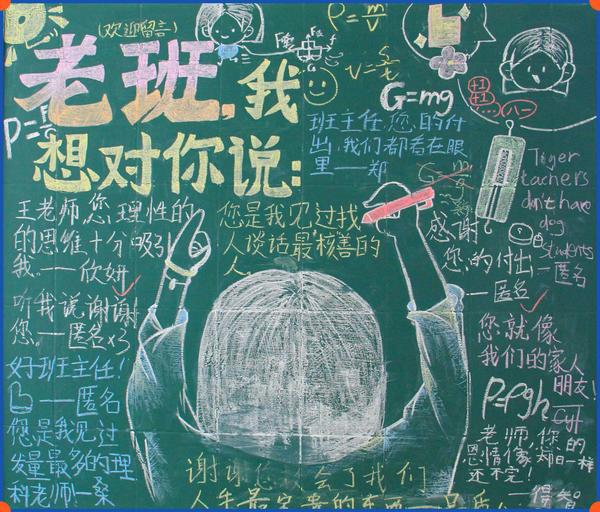 (欢迎留言)
老班,我
想对你说:
ρ=m/V
v=s/t
G=mg
+1
+1...
八一
班主任,您的付
出,我们都看在眼
里——郑
王老师您理性的
的思维十分吸引
我。——欣妍
您是我见过找
人谈话最"核善"的
人
感谢
您的付出
——匿名
Tiger
tachers
don't have
dog
students
——匿名
听我说谢谢
您。——匿名x3
好班主任!
——匿名
您是我见过
发量最多的理
科老师!—桑
您就像
我们的家人
朋友!
P=ρgh
老师,您的
恩情像郑日一样
还不完!
——得智
谢谢您教会了我们